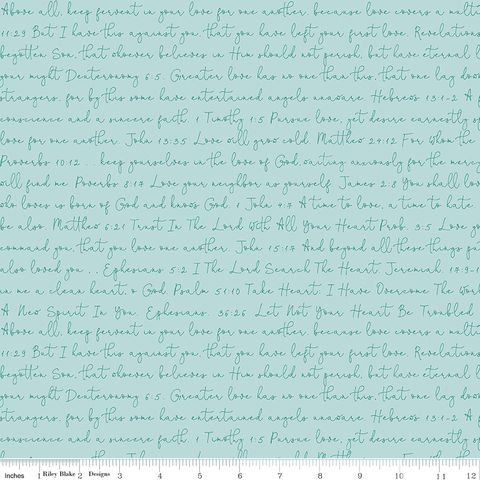 Above all, keep fervent in your love for one another, because love covers a multi
11:29 But I have this against you, that you have left your first love. Revelations
begotten Son, that ohoever believes in Him should not perish, but have eternal l
your might Deuteronomy 6:5. Greater love has no one than this, that one lay dow
strangers, for by this some have entertained angels unaware. Hebrews 13:1-2 A p
conscience and a sincere faith. 1 Timothy 1:5 Pursue love, yet desire earnestly s
love for one another. John 13:35 Love oill grow cold. Mattheo 24:12 For Whom the
Proverbs 10:12 ... keep yourselves in the love of God, oaiting anxiously for the mercy
oill find me Poverbs 8:17 Love your neighbor as yourself. James 2:8 You shall lov
oho loves is born of God and knoos God. 1 John 4:7 A time to love, a time to hate
be also. Mattheo 6:21 Trust In The Lord With All Your Heart Prob. 3:5 Love yo
command you, that you love one another. John 15:17 And beyond all these things put
also loved you ... Ephesians 5:2 I The Lord Search The Heart, Jeremial. 17:9-1
in me a clean heart, o God Psalm 51:10 Take Heart I Have Overcome The Worl
A Neo Spirit In You. Ephesians. 36:26 Let Not Your Heart Be Troubled
Above all, keep fervent in your love for one another, because love covers a multi
11:29 But I have this against you, that you have left your first love. Revelations
begotten Son, that ohoever believes in Him should not perish, but have eternal l
your might Deuteronomy 6:5. Greater love has no one than this, that one lay dow
strangers, for by this some have entertained angels unaware. Hebrews 13:1-2 A p
conscience and a sincere faith. 1 Timothy 1:5 Pursue love, yet desire earnestly s
Inches 1 Riley Blake 2 Designs 3 4 5 6 7 8 9 10 11 12